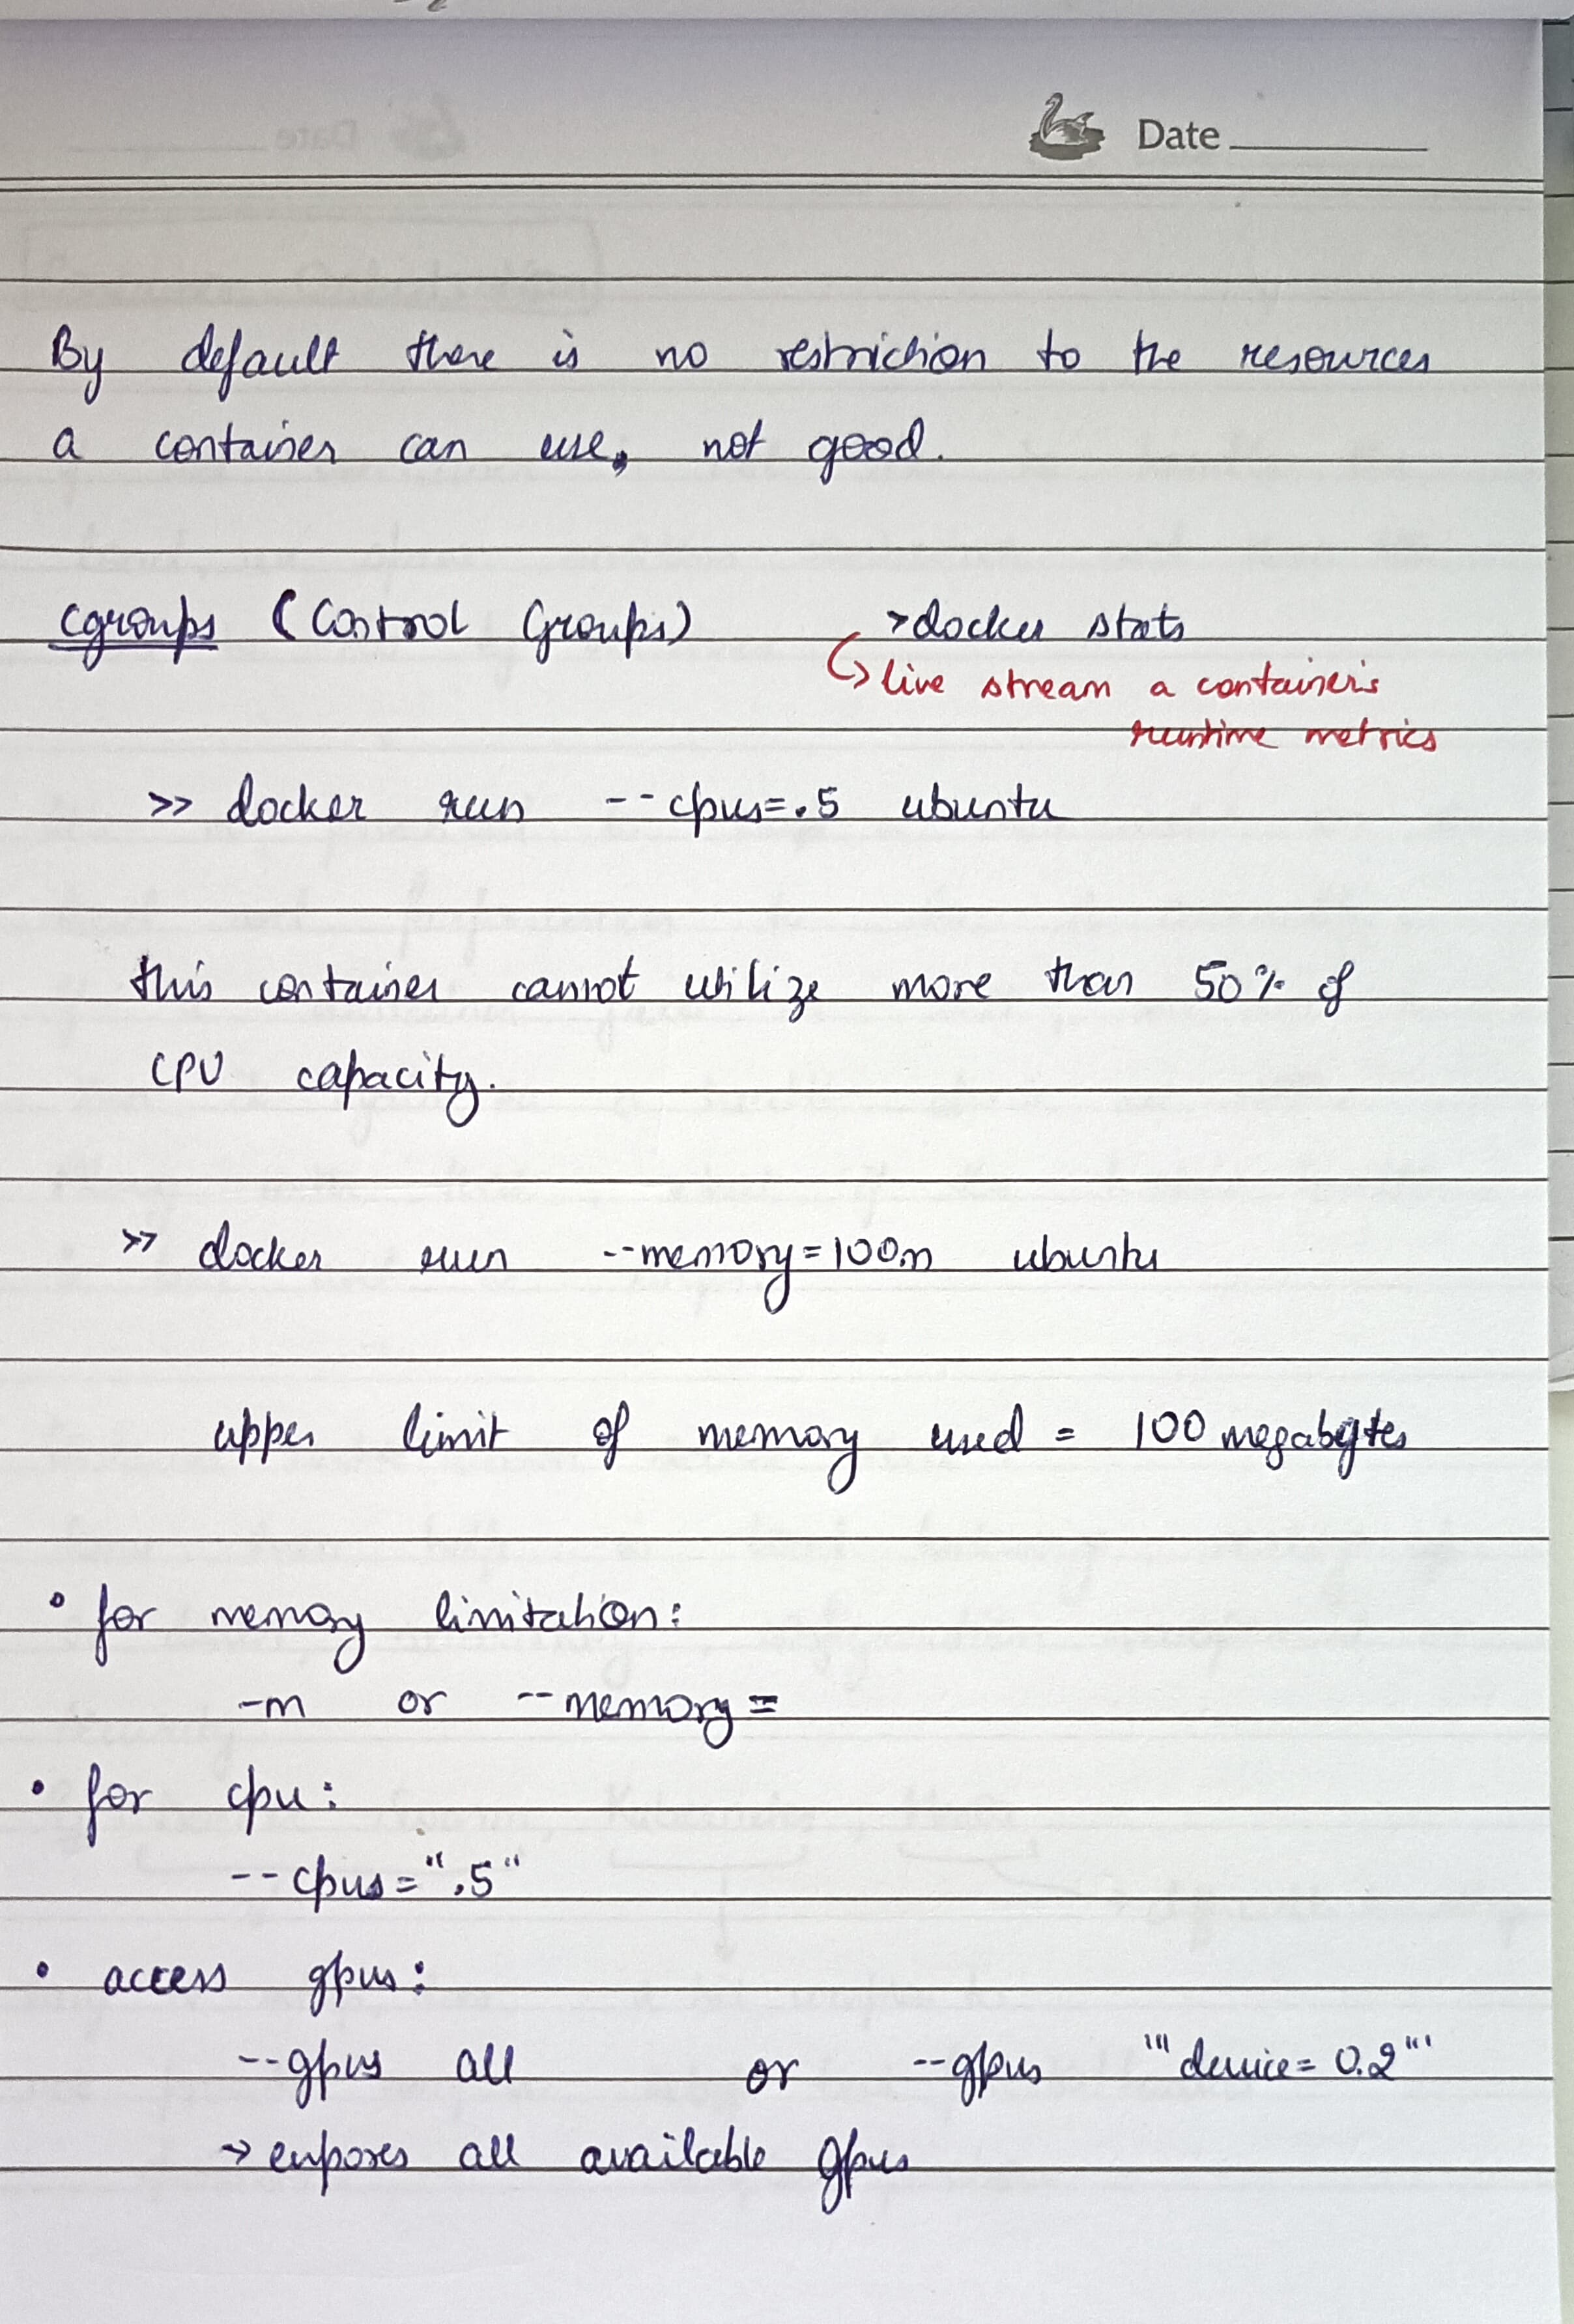 Date
By default there is no restriction to the resources
a container can use, not good.
cgroups (Control Groups)
>docker stats
live stream a container's
runtime metrics
>> docker run --cpus=.5 ubuntu
this container cannot utilize more than 50% of
CPU capacity.
>> docker run --memory=100m ubuntu
upper limit of memory used = 100 megabytes
• for memory limitation:
-m or --memory=
• for cpu:
--cpus=".5"
• access gpus:
--gpus all or --gpus '"device=0.2"'
→ exposes all available gpus